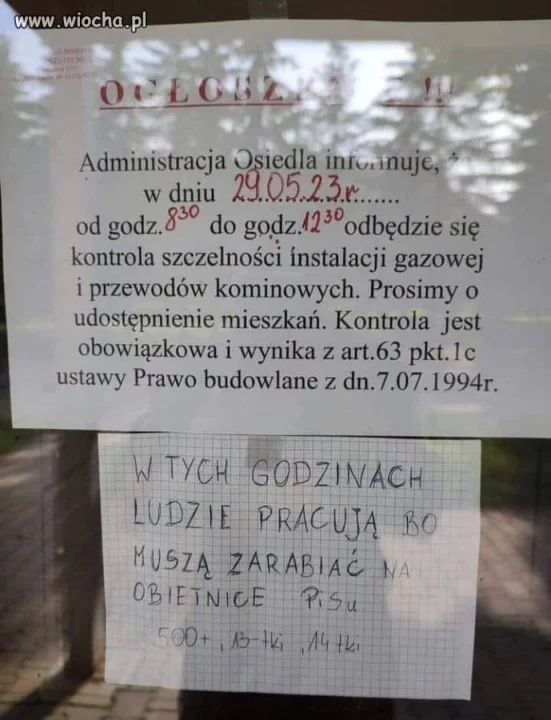 www.wiocha.pl
Administracja Osiedla informuje,
w dniu 29.05.23r.......
od godz.8³⁰ do godz.12³⁰ odbędzie się
kontrola szczelności instalacji gazowej
i przewodów kominowych. Prosimy o
udostępnienie mieszkań. Kontrola jest
obowiązkowa i wynika z art.63 pkt.1c
ustawy Prawo budowlane z dn.7.07.1994r.
W TYCH GODZINACH
LUDZIE PRACUJĄ BO
MUSZĄ ZARABIAĆ NA
OBIETNICE PiSu
500+, 13-tki, 14 tki